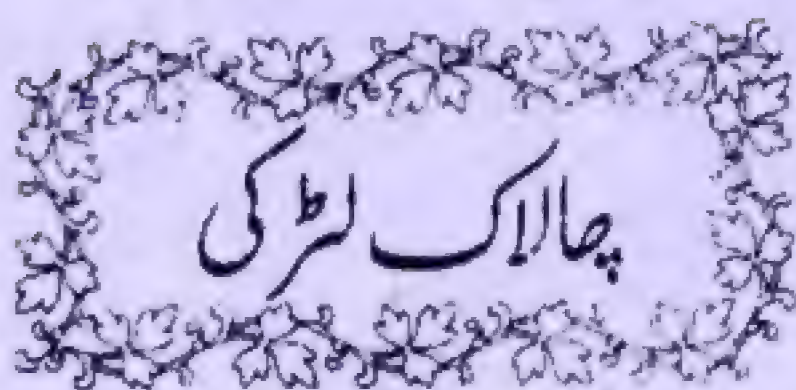 چالاک لڑکی